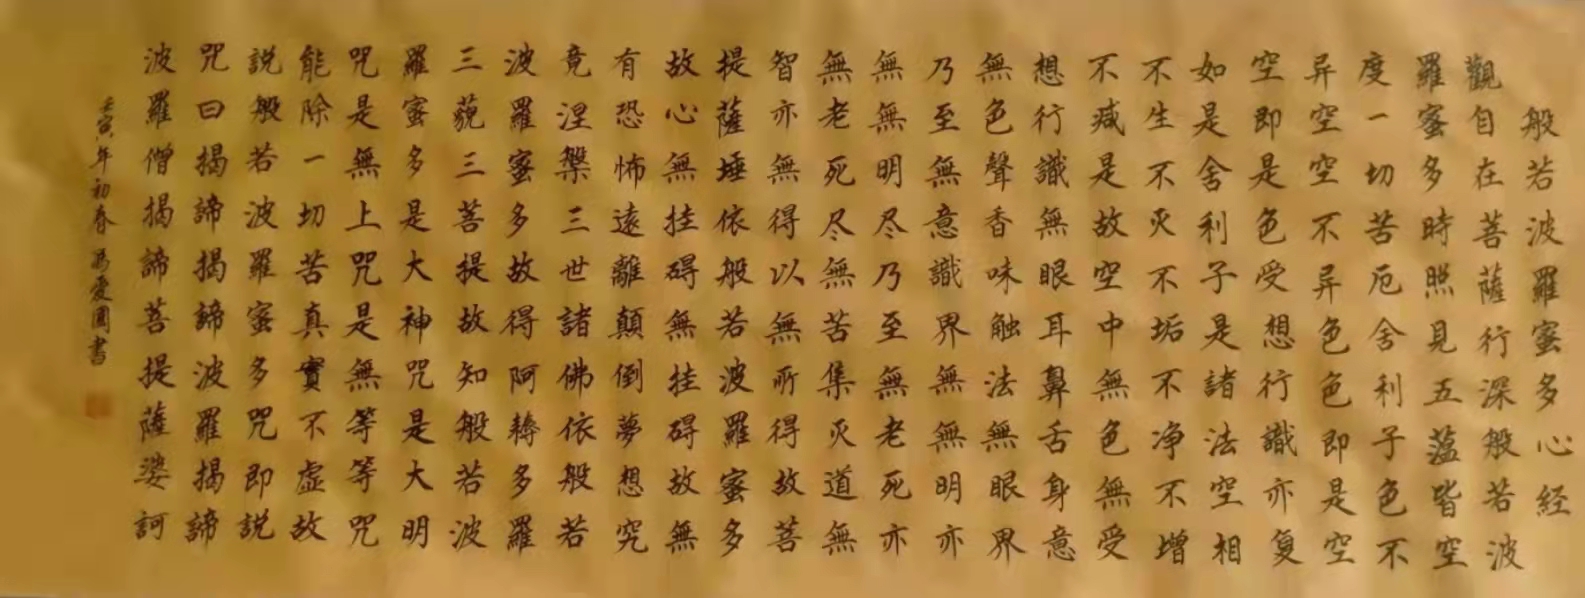 般若波羅蜜多心经
觀自在菩薩行深般若波
羅蜜多時照見五蕴皆空
度一切苦厄舍利子色不
异空空不异色色即是空
空即是色受想行識亦复
如是舍利子是諸法空相
不生不灭不垢不净不增
不减是故空中無色無受
想行識無眼耳鼻舌身意
無色聲香味触法無眼界
乃至無意識界無無明亦
無無明尽乃至無老死亦
無老死尽無苦集灭道無
智亦無得以無所得故菩
提薩埵依般若波羅蜜多
故心無挂碍無挂碍故無
有恐怖遠離顛倒夢想究
竟涅槃三世諸佛依般若
波羅蜜多故得阿耨多羅
三藐三菩提故知般若波
羅蜜多是大神咒是大明
咒是無上咒是無等等咒
能除一切苦真實不虛故
説般若波羅蜜多咒即説
咒曰揭諦揭諦波羅揭諦
波羅僧揭諦菩提薩婆訶
壬寅年初春 馮愛國書